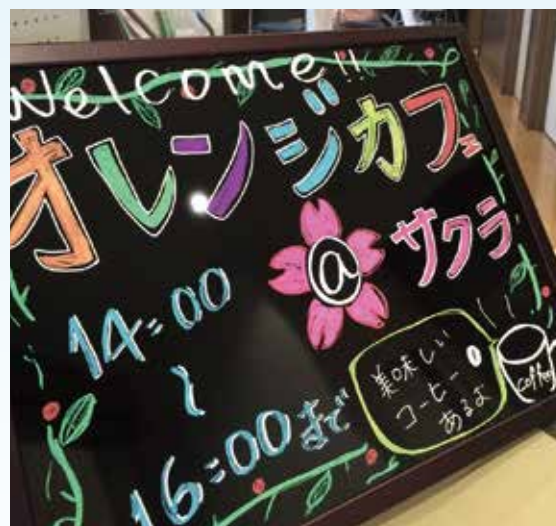 Welcome!!
オレンジカフェ
@
サクラ
14:00
〜
16:00まで
美味しい
コーヒー
あるよ
coffee